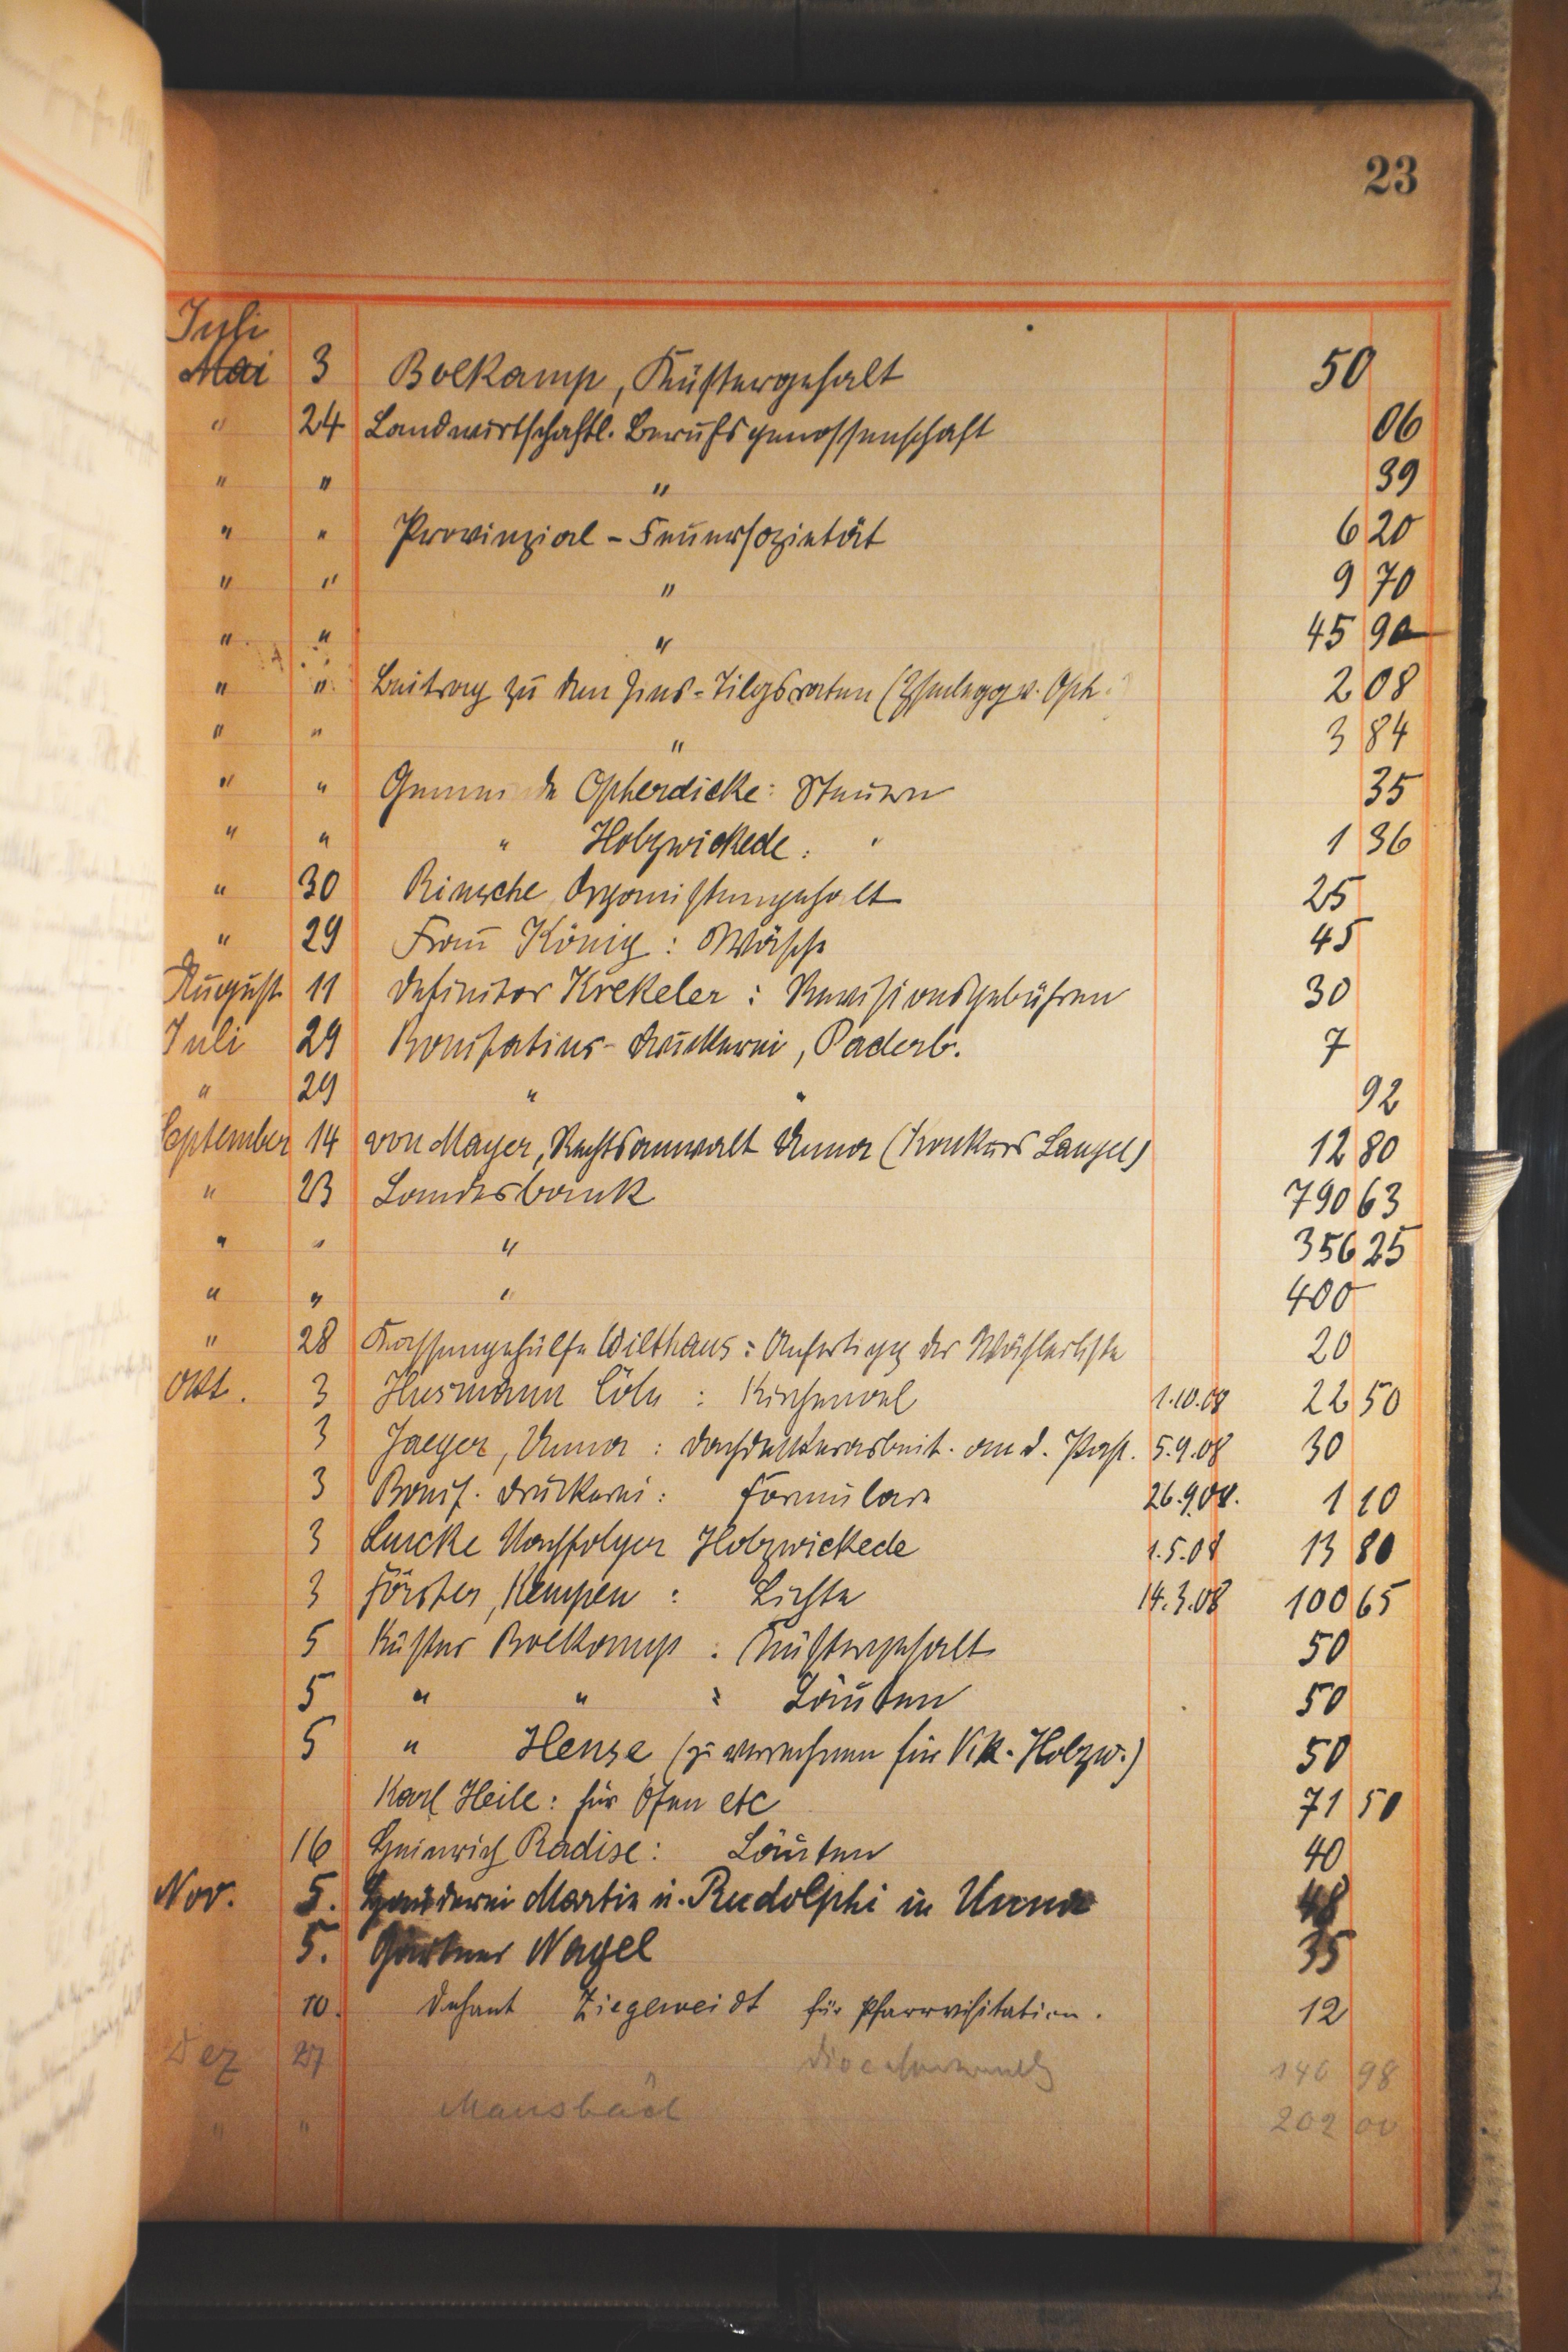 23
Juli
Mai 3 Bolkamp, Küstergehalt 50
" 24 Landwirtschaftl. Berufsgenossenschaft 06
" " " 39
" " Provinzial-Feuersozietät 6 20
" " " 9 70
" " " 45 90
" " Beitrag zu den Zins-Tilgsraten ( v. Oph. 2 08
" " " 3 84
" " Gemeinde Opherdicke: Steuern 35
" " " Holzwickede: " 1 36
" 30 Rinsche Organistengehalt 25
" 29 Frau König: Wäsche 45
August 11 Definitor Krekeler: Revisionsgebühren 30
Juli 29 Bonifatius-Druckerei, Paderb. 7
" 29 " " 92
September 14 von Mayer, Rechtsanwalt Unna (Konkurs Langel) 12 80
" 23 Landesbank 790 63
" " " 356 25
" " " 400
" 28 Kassengehülfe Wilthaus: Anfertigg der Wählerliste 20
Okt. 3 Husmann Cöln: Kirchenoel 1.10.08 22 50
3 Jaeger, Unna: Dachdeckerarbeit. an d. Past. 5.9.08 30
3 Bonif. Druckerei: Formulare 26.9.08. 1 10
3 Luecke Nachfolger Holzwickede 1.5.08 13 80
3 Förster, Kempen: Lichte 14.3.08 100 65
5 Küster Bolkamp: Küstergehalt 50
5 " " : Läuten 50
5 " Hense (zu verrechnen für Vik. Holzw.) 50
Karl Heile: für Öfen etc 71 50
16 Heinrich Radise: Läuten 40
Nov. 5. Martin u. Rudolphi in Unna 48
5. Gärtner Nagel 35
10. Dechant Ziegeweidt für Pfarrvisitation. 12
Dez 27 146 98
" " 202 00